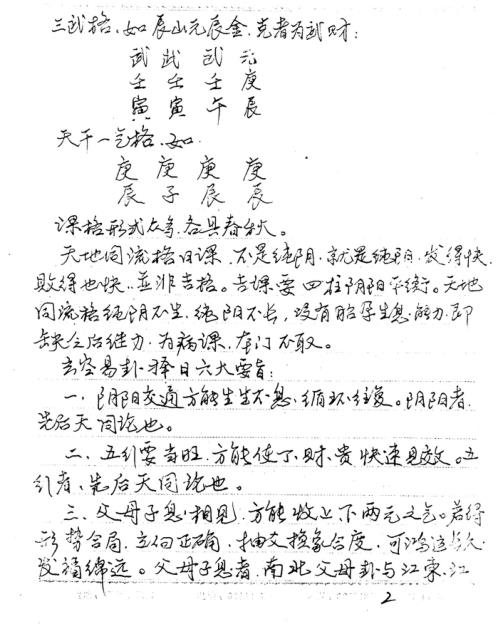 三武格、如辰山元辰金,克者为武财:
武 武 武 元
壬 壬 壬 庚
寅 寅 午 辰
天干一气格、如
庚 庚 庚 庚
辰 子 辰 辰
课格形式众多,各具春秋。
天地同流格日课,不是纯阴,就是纯阳,发得快
败得也快,并非吉格。吉课要四柱阴阳平衡。天地
同流格纯阴不生,纯阳不长,没有胎孕生息能力,即
缺乏后继力,为病课,本门不取。
玄空易卦择日六大要旨:
一、阴阳交通方能生生不息,循环往复。阴阳者,
先后天同论也。
二、五行要当旺,方能使丁、财、贵快速见效。五
行者,先后天同论也。
三、父母子息相见,方能收上下两元之气。若得
形势合局,立向正确,抽爻换象合度,可鸿运长久
发福绵远。父母子息者,南北父母卦与江东、江
2